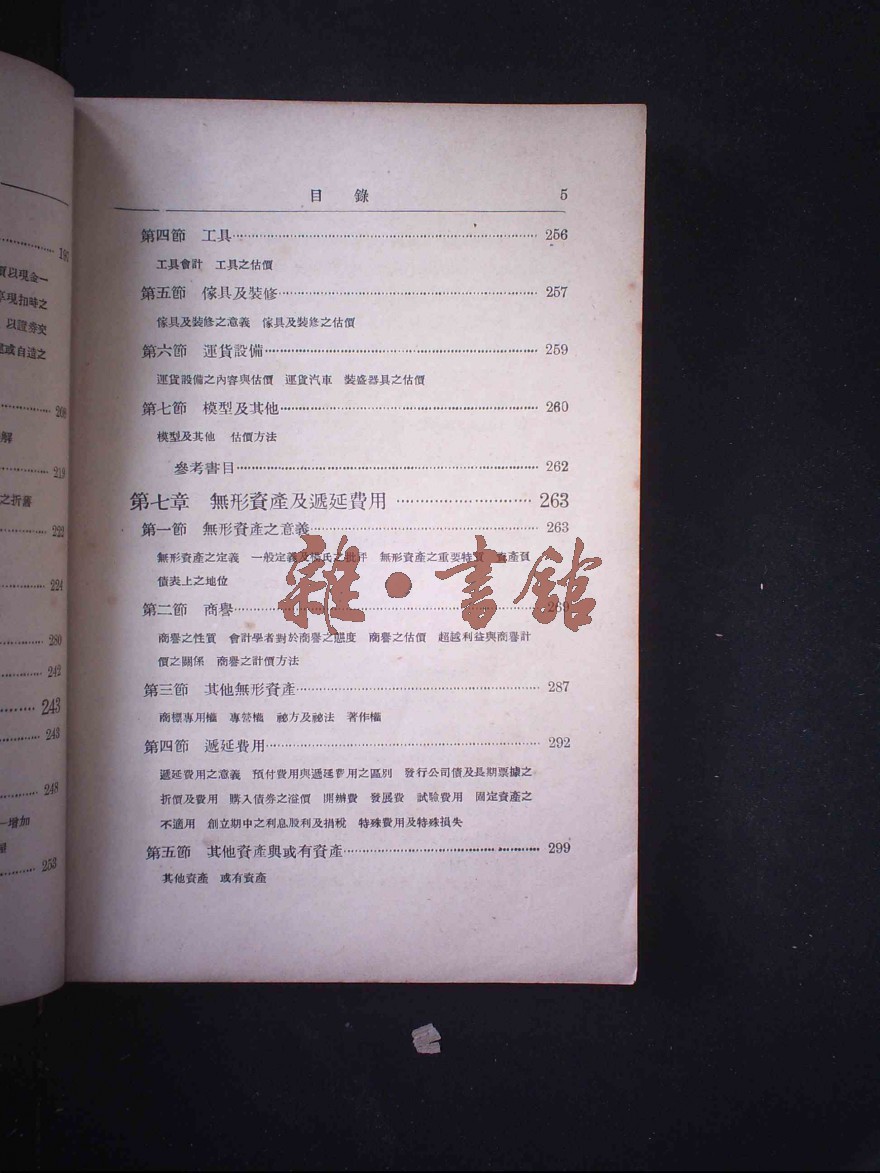 190
價以現金一
享現扣時之
以證券交
或自造之
208
解
219
之折舊
222
224
230
242
243
243
248
一增加
253
目錄 5
第四節 工具 256
工具會計 工具之估價
第五節 傢具及裝修 257
傢具及裝修之意義 傢具及裝修之估價
第六節 運貨設備 259
運貨設備之內容與估價 運貨汽車 裝盛器具之估價
第七節 模型及其他 260
模型及其他 估價方法
參考書目 262
第七章 無形資產及遞延費用 263
第一節 無形資產之意義 263
無形資產之定義 一般定義及楊氏之批評 無形資產之重要特質 資產負
債表上之地位
雜·書館
第二節 商譽 269
商譽之性質 會計學者對於商譽之態度 商譽之估價 超越利益與商譽計
價之關係 商譽之計價方法
第三節 其他無形資產 287
商標專用權 專營權 祕方及祕法 著作權
第四節 遞延費用 292
遞延費用之意義 預付費用與遞延費用之區別 發行公司債及長期票據之
折價及費用 購入債券之溢價 開辦費 發展費 試驗費用 固定資產之
不適用 創立期中之利息股利及捐稅 特殊費用及特殊損失
第五節 其他資產與或有資產 299
其他資產 或有資產